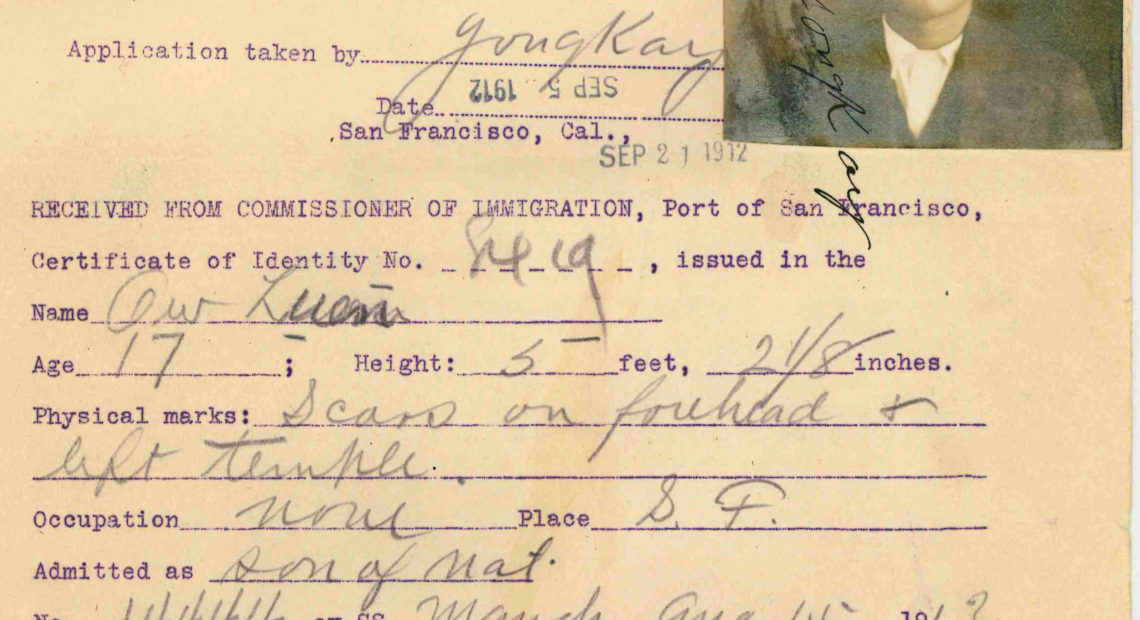 Application taken by Yong Kay
SEP 5 1912
Date
San Francisco, Cal.,
SEP 21 1912
RECEIVED FROM COMMISSIONER OF IMMIGRATION, Port of San Francisco,
Certificate of Identity No. , issued in the
Name Ow
Age 17 ; Height: 5 feet, 2 1/8 inches.
Physical marks: Scars on forehead +
left temple.
Occupation none Place S. F.
Admitted as son of nat.
Aug 15